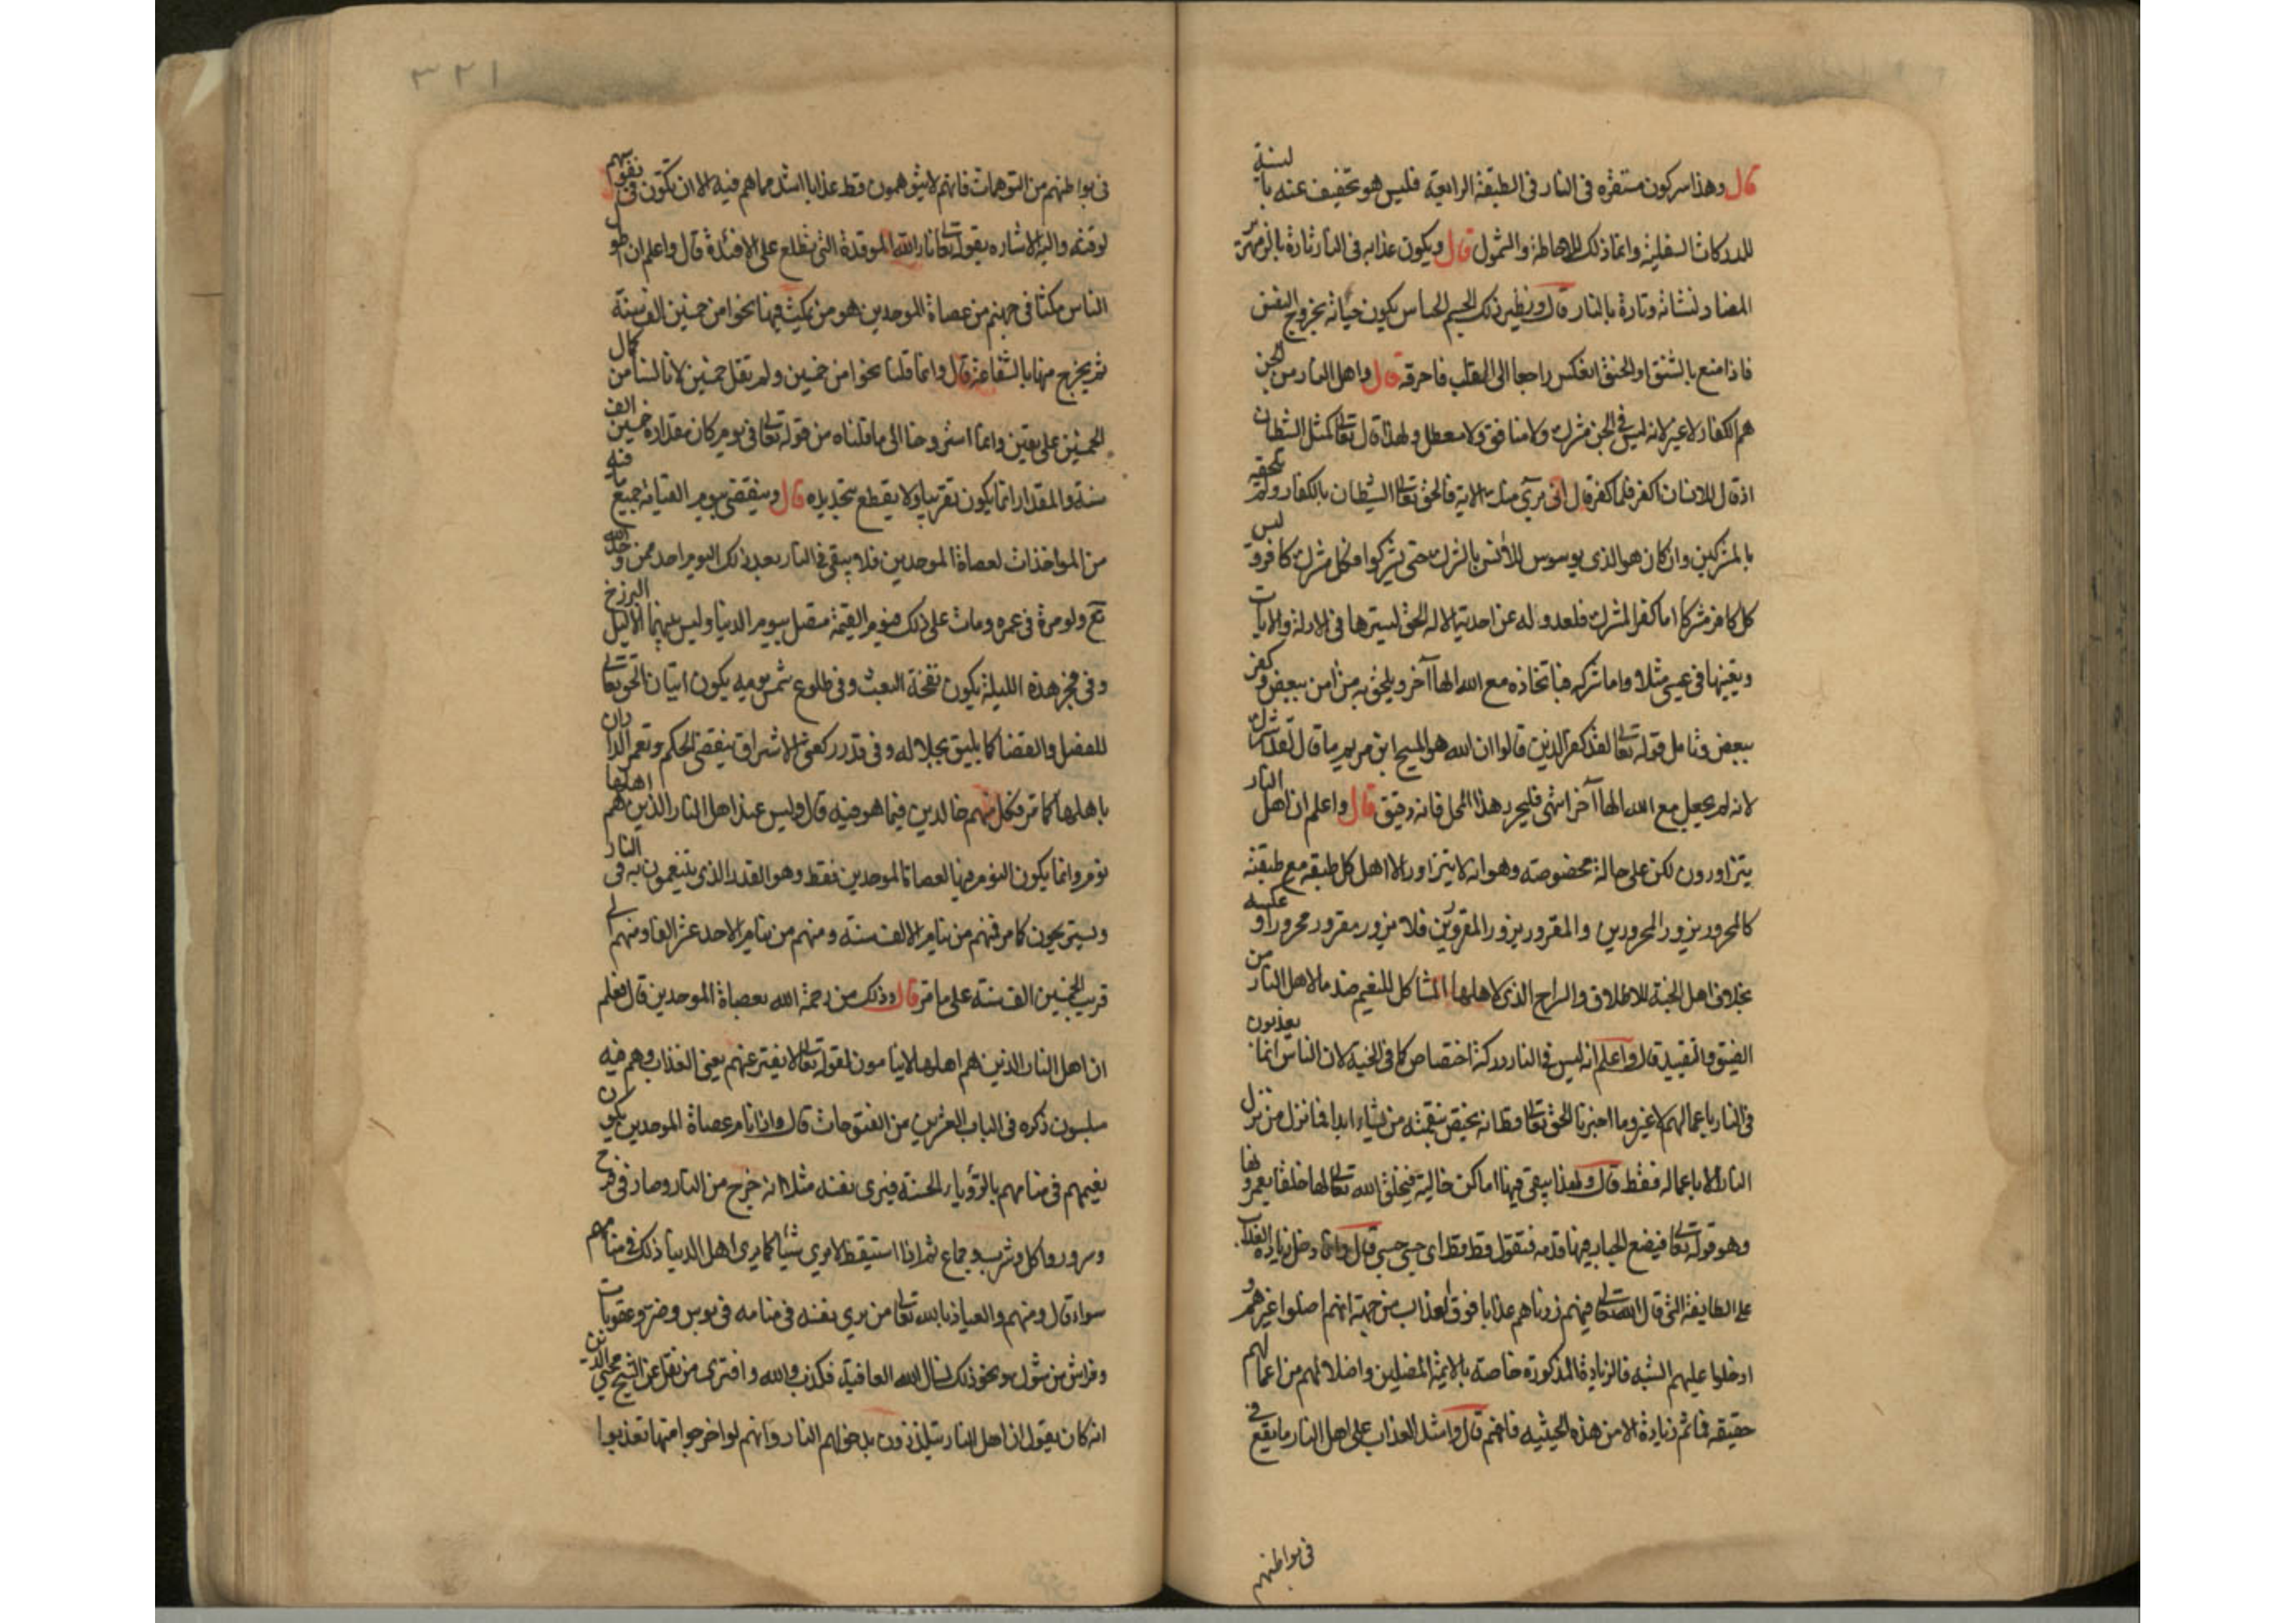 قال وهذا سر كون مستقره فى النار فى الطبقة الرابعة فليس هو تخفيف عنه بالنسبة
للدركات السفلية وانما ذلك للاحاطة والشمول قال ويكون عذابه فى النار تارة بالزمهرير
المضاد لنشاته وتارة بالنار قال ونظير ذلك الجسم الحساس يكون حياته بخروج النفس
فاذا منع بالشنق او الخنق انعكس راجعا الى القلب فاحرقه قال واهل النار من الجن
هم الكفار لا غير لانه ليس فى الجن مشرك ولا منافق ولا معطل ولهذا قال تعالى كمثل الشيطان
اذ قال للانسان اكفر فلما كفر قال انى برىء منك الاية فالحق تعالى الشيطان بالكفار ولم يلحقه
بالمشركين وان كان هو الذى يوسوس للانس بالشرك حتى يشركوا فكل مشرك كافر وليس
كل كافر مشركا اما كفر المشرك فلعدوله عن احدية الاله الحق لسترها فى الادلة والايات
وتعينها فى عيسى مثلا واما شركه فباتخاذه مع الله الها آخر ويلحق به من امن ببعض وكفر
ببعض وتامل قوله تعالى لقد كفر الذين قالوا ان الله هو المسيح ابن مريم ما قال لقد اشرك
لانه لم يجعل مع الله الها آخر انتهى فليحرر هذا المحل فانه دقيق قال واعلم ان اهل النار
يتزاورون لكن على حالة مخصوصة وهو انه لا يتزاور الا اهل كل طبقه مع طبقته
كالمحرور يزور المحرورين والمقرور يزور المقرورين فلا يزور مقرور محرورا وعكسه
بخلاف اهل الجنة للاطلاق والسراح الذى لاهلها المشاكل للنعيم ضد ما لاهل النار من
الضيق والتقييد قال واعلم انه ليس فى النار دركة اختصاص كما فى الجنة لان الناس انما يعذبون
فى النار باعمالهم لا غير وما اخبرنا الحق تعالى قط انه يختص بنقمته من يشاء ابدا فما نزل من نزل
النار الا باعماله فقط قال ولهذا يبقى فيها اماكن خالية فيخلق الله تعالى لها خلقا يعمرونها
وهو قوله تعالى فيضع الجبار فيها قدمه فتقول قط قط اى حسبى حسبى قال وانما دخل زيادة العذاب
على الطايفة التى قال الله تعالى فيهم زدناهم عذابا فوق العذاب من جهة انهم اضلوا غيرهم و
ادخلوا عليهم الشبه فالزيادة المذكورة خاصة بالايمة المضلين واضلالهم من اعمالهم
حقيقة فما ثم زيادة الا من هذه الحيثيه فافهم قال واشد العذاب على اهل النار ما يقع فى
فى بواطنهم
٣٢١
فى بواطنهم من التوهمات فانهم لا يتوهمون قط عذابا اشد مما هم فيه الا ان تكون فى نفوسهم
لوقته واليه الاشاره بقوله تعالى نار الله الموقدة التى تطلع على الافئدة قال واعلم ان اطول
الناس مكثا فى جهنم من عصاة الموحدين هو من يمكث فيها نحوا من خمسين الف سنة
ثم يخرج منها بالشفاعة قال وانما قلنا نحوا من خمسين ولم نقل خمسين لاننا لسنا من كمال
الخمسين على يقين وانما استروحنا الى ما قلناه من قوله تعالى فى يوم كان مقداره خمسين الف
سنة والمقدار انما يكون تقريبا ولا يقطع بتحديده قال وينقضى يوم القيامة جميع ما فيه
من المواخذات لعصاة الموحدين فلا يبقى فى النار بعد ذلك اليوم احد ممن وحد الله
تع ولو مرة فى عمره ومات على ذلك فيوم القيمة متصل بيوم الدنيا وليس بينهما الا ليل البرزخ
وفى فجر هذه الليلة يكون نفخة البعث وفى طلوع شمس يومه يكون اتيان الحق تعالى
للفصل والقضا كما يليق بجلاله وفى قدر ركعتى الاشراق ينقضى الحكم وتعمر الداران
باهلها كما مر فكل منهم خالدين فيما هو فيه قال وليس عند اهل النار الذين هم اهلها
نوم وانما يكون النوم فيها لعصاة الموحدين فقط وهو القدر الذى يتنعمون به فى النار
ويستريحون كما مر فمنهم من ينام الالف سنة ومنهم من ينام الاحد عشر الفا ومنهم الى
قريب الخمسين الف سنة على ما مر قال وذلك من رحمة الله بعصاة الموحدين قال فعلم
ان اهل النار الذين هم اهلها لا ينامون لقوله تعالى لا يفتر عنهم يعنى العذاب وهم فيه
مبلسون ذكره فى الباب العشرين من الفتوحات قال واذا نام عصاة الموحدين يكون
نعيمهم فى منامهم بالرؤيا الحسنة فيرى نفسه مثلا انه خرج من النار وصار فى فرح
وسرور واكل وشرب وجماع ثم اذا استيقظ لا يرى شيئا كما يرى اهل الدنيا ذلك فى منامهم
سواء قال ومنهم والعياذ بالله تعالى من يرى نفسه فى منامه فى بوس وضر وعقوبات
وفراش من شوك ونحو ذلك نسال الله العافية فكذب والله وافترى من نقل عن الشيخ محيى الدين
انه كان يقول ان اهل النار يتلذذون بدخولهم النار وانهم لو اخرجوا منها تعذبوا